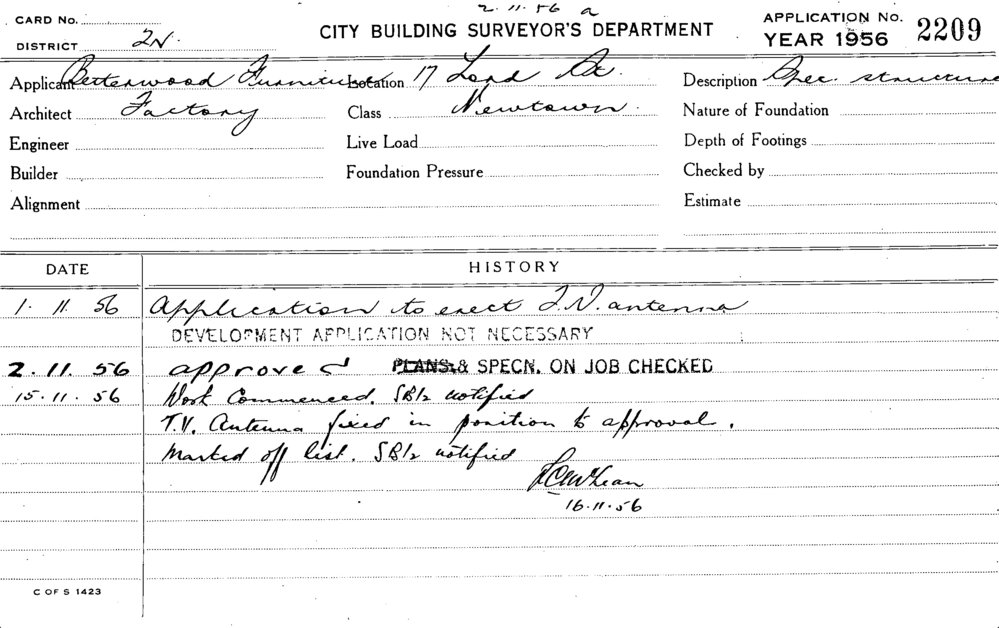 2.11.56 a
CARD No.
CITY BUILDING SURVEYOR'S DEPARTMENT
APPLICATION No. 2209
YEAR 1956
DISTRICT 2N.
Applicant Betterwood Furniture Location 17 Lord St. Description Spec. structure
Architect Factory Class Newtown. Nature of Foundation
Engineer Live Load Depth of Footings
Builder Foundation Pressure Checked by
Alignment Estimate
DATE HISTORY
1. 11. 56 Application to erect T.V. antenna
DEVELOPMENT APPLICATION NOT NECESSARY
2. 11. 56 approved PLANS & SPECN. ON JOB CHECKED
15. 11. 56 Work Commenced. SB/2 notified
T.V. Antenna fixed in position to approval.
Marked off list. SB/2 notified
16.11.56
C OF S 1423